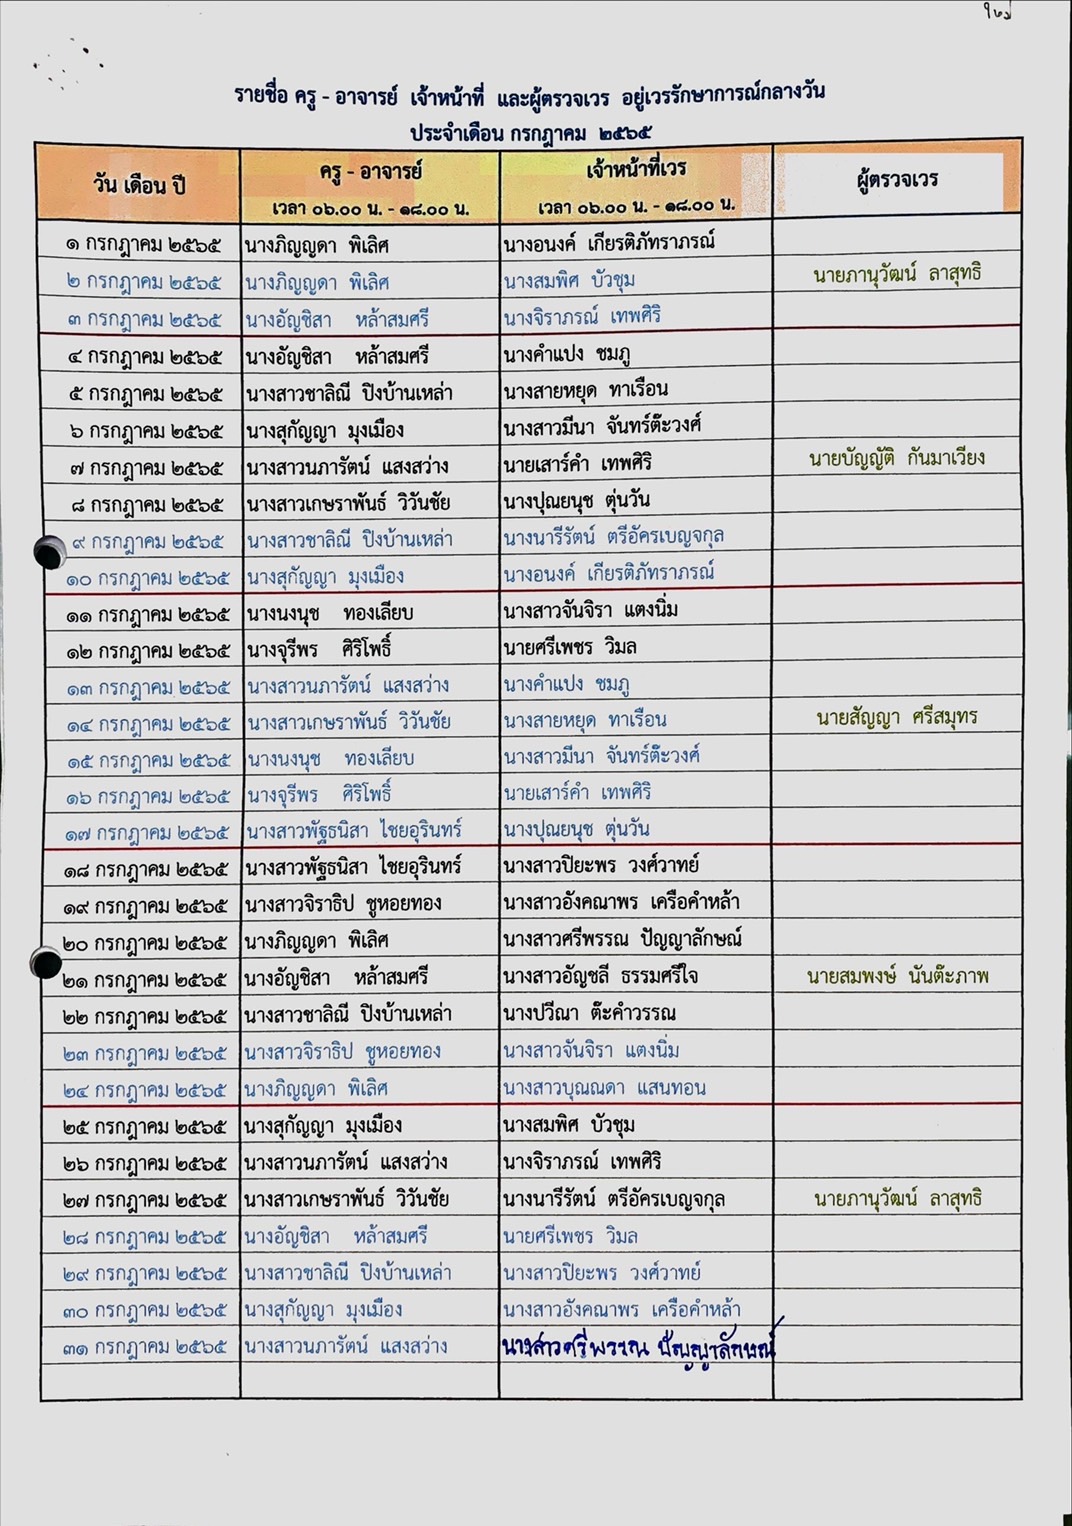 ใหม่
รายชื่อ ครู - อาจารย์ เจ้าหน้าที่ และผู้ตรวจเวร อยู่เวรรักษาการณ์กลางวัน
ประจำเดือน กรกฎาคม ๒๕๖๕
วัน เดือน ปี ครู - อาจารย์ เจ้าหน้าที่เวร ผู้ตรวจเวร
เวลา ๐๖.๐๐ น. - ๑๘.๐๐ น. เวลา ๐๖.๐๐ น. - ๑๘.๐๐ น.
๑ กรกฎาคม ๒๕๖๕ นางภิญญดา พิเลิศ นางอนงค์ เกียรติภัทราภรณ์
๒ กรกฎาคม ๒๕๖๕ นางภิญญดา พิเลิศ นางสมพิศ บัวชุม นายภานุวัฒน์ ลาสุทธิ
๓ กรกฎาคม ๒๕๖๕ นางอัญชิสา หล้าสมศรี นางจิราภรณ์ เทพศิริ
๔ กรกฎาคม ๒๕๖๕ นางอัญชิสา หล้าสมศรี นางคำแปง ชมภู
๕ กรกฎาคม ๒๕๖๕ นางสาวชาลิณี ปิงบ้านเหล่า นางสายหยุด ทาเรือน
๖ กรกฎาคม ๒๕๖๕ นางสุกัญญา มุงเมือง นางสาวมีนา จันทร์ต๊ะวงศ์
๗ กรกฎาคม ๒๕๖๕ นางสาวนภารัตน์ แสงสว่าง นายเสาร์คำ เทพศิริ นายบัญญัติ กันมาเวียง
๘ กรกฎาคม ๒๕๖๕ นางสาวเกษราพันธ์ วิวันชัย นางปุณยนุช ตุ่นวัน
๙ กรกฎาคม ๒๕๖๕ นางสาวชาลิณี ปิงบ้านเหล่า นางนารีรัตน์ ตรีอัครเบญจกุล
๑๐ กรกฎาคม ๒๕๖๕ นางสุกัญญา มุงเมือง นางอนงค์ เกียรติภัทราภรณ์
๑๑ กรกฎาคม ๒๕๖๕ นางนงนุช ทองเลียบ นางสาวจันจิรา แตงนิ่ม
๑๒ กรกฎาคม ๒๕๖๕ นางจุรีพร ศิริโพธิ์ นายศรีเพชร วิมล
๑๓ กรกฎาคม ๒๕๖๕ นางสาวนภารัตน์ แสงสว่าง นางคำแปง ชมภู
๑๔ กรกฎาคม ๒๕๖๕ นางสาวเกษราพันธ์ วิวันชัย นางสายหยุด ทาเรือน นายสัญญา ศรีสมุทร
๑๕ กรกฎาคม ๒๕๖๕ นางนงนุช ทองเลียบ นางสาวมีนา จันทร์ต๊ะวงศ์
๑๖ กรกฎาคม ๒๕๖๕ นางจุรีพร ศิริโพธิ์ นายเสาร์คำ เทพศิริ
๑๗ กรกฎาคม ๒๕๖๕ นางสาวพัฐธนิสา ไชยอุรินทร์ นางปุณยนุช ตุ่นวัน
๑๘ กรกฎาคม ๒๕๖๕ นางสาวพัฐธนิสา ไชยอุรินทร์ นางสาวปิยะพร วงศ์วาทย์
๑๙ กรกฎาคม ๒๕๖๕ นางสาวจิราธิป ชูหอยทอง นางสาวอังคณาพร เครือคำหล้า
๒๐ กรกฎาคม ๒๕๖๕ นางภิญญดา พิเลิศ นางสาวศรีพรรณ ปัญญาลักษณ์
๒๑ กรกฎาคม ๒๕๖๕ นางอัญชิสา หล้าสมศรี นางสาวอัญชลี ธรรมศรีใจ นายสมพงษ์ นันต๊ะภาพ
๒๒ กรกฎาคม ๒๕๖๕ นางสาวชาลิณี ปิงบ้านเหล่า นางปวีณา ต๊ะคำวรรณ
๒๓ กรกฎาคม ๒๕๖๕ นางสาวจิราธิป ชูหอยทอง นางสาวจันจิรา แตงนิ่ม
๒๔ กรกฎาคม ๒๕๖๕ นางภิญญดา พิเลิศ นางสาวบุณณดา แสนทอน
๒๕ กรกฎาคม ๒๕๖๕ นางสุกัญญา มุงเมือง นางสมพิศ บัวชุม
๒๖ กรกฎาคม ๒๕๖๕ นางสาวนภารัตน์ แสงสว่าง นางจิราภรณ์ เทพศิริ
๒๗ กรกฎาคม ๒๕๖๕ นางสาวเกษราพันธ์ วิวันชัย นางนารีรัตน์ ตรีอัครเบญจกุล นายภานุวัฒน์ ลาสุทธิ
๒๘ กรกฎาคม ๒๕๖๕ นางอัญชิสา หล้าสมศรี นายศรีเพชร วิมล
๒๙ กรกฎาคม ๒๕๖๕ นางสาวชาลิณี ปิงบ้านเหล่า นางสาวปิยะพร วงศ์วาทย์
๓๐ กรกฎาคม ๒๕๖๕ นางสุกัญญา มุงเมือง นางสาวอังคณาพร เครือคำหล้า
๓๑ กรกฎาคม ๒๕๖๕ นางสาวนภารัตน์ แสงสว่าง นางสาวศรีพรรณ ปัญญาลักษณ์